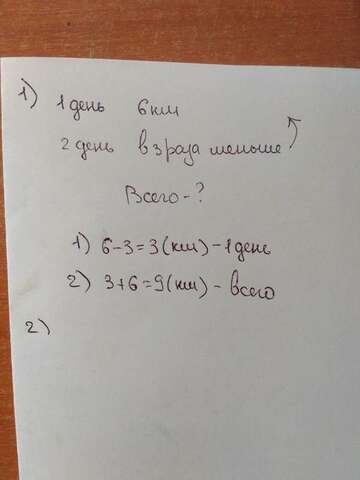 1) 1 день 6 км
2 день в 3 раза меньше
Всего - ?
1) 6-3=3 (км) - 1 день
2) 3+6=9 (км) - всего
2)